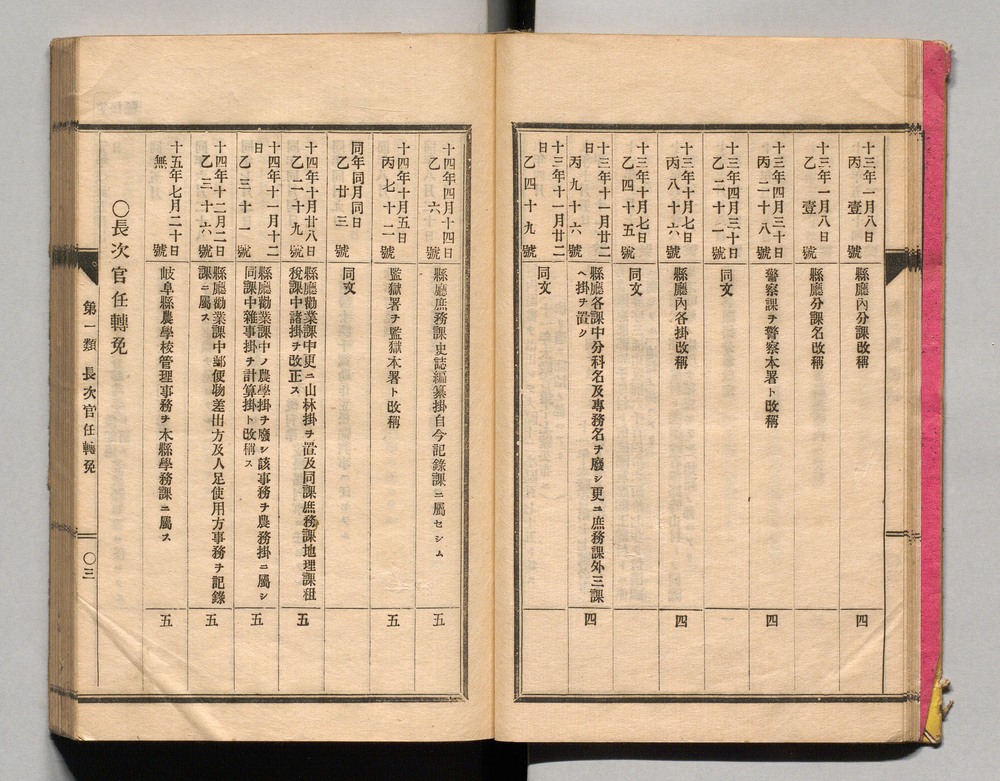 十三年一月八日丙壹號 縣廳內分課改稱 四
十三年一月八日乙壹號 縣廳分課名改稱
十三年四月三十日丙二十八號 警察課ヲ警察本署ト改稱 四
十三年四月三十日乙二十一號 同文
十三年十月七日丙八十六號 縣廳內各掛改稱 四
十三年十月七日乙四十五號 同文
十三年十一月廿二日丙九十六號 縣廳各課中分科名及專務名ヲ廢シ更ニ庶務課外三課ヘ掛ヲ置ク 四
十三年十一月廿二日乙四十九號 同文
十四年四月十四日乙六號 縣廳庶務課史誌編纂掛自今記錄課ニ屬セシム 五
十四年十月五日丙七十二號 監獄署ヲ監獄本署ト改稱 五
同年同月同日乙廿三號 同文
十四年十月廿八日乙二十九號 縣廳勸業課中更ニ山林掛ヲ置及同課庶務課地理課租稅課中諸掛ヲ改正ス 五
十四年十一月十二日乙三十一號 縣廳勸業課中ノ農學掛ヲ廢シ該事務ヲ農務掛ニ屬シ同課中雜事掛ヲ計算掛ト改稱ス 五
十四年十二月二日乙三十六號 縣廳勸業課中郵便物差出方及人足使用方事務ヲ記錄課ニ屬ス 五
十五年七月二十日無號 岐阜縣農學校管理事務ヲ本縣學務課ニ屬ス 五
〇長次官任轉免
第一類 長次官任轉免 〇三